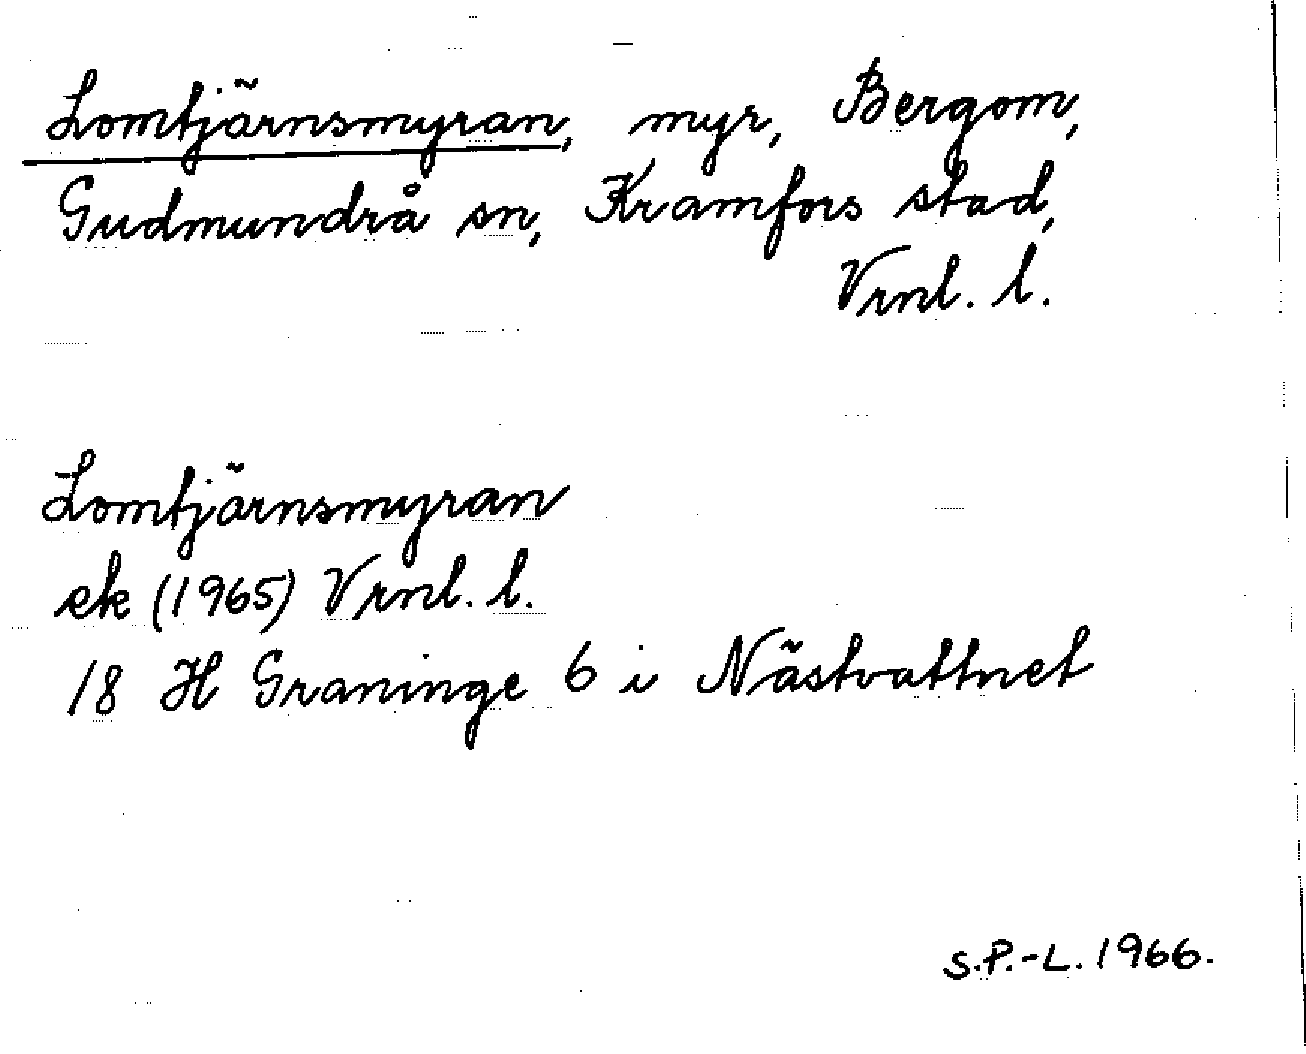 Lomtjärnsmyran, myr, Bergom,
Gudmundrå sn, Kramfors stad,
Vrnl. l.
Lomtjärnsmyran
ek (1965) Vrnl. l.
18 H Graninge 6 i Nästvattnet
S.P.-L. 1966.